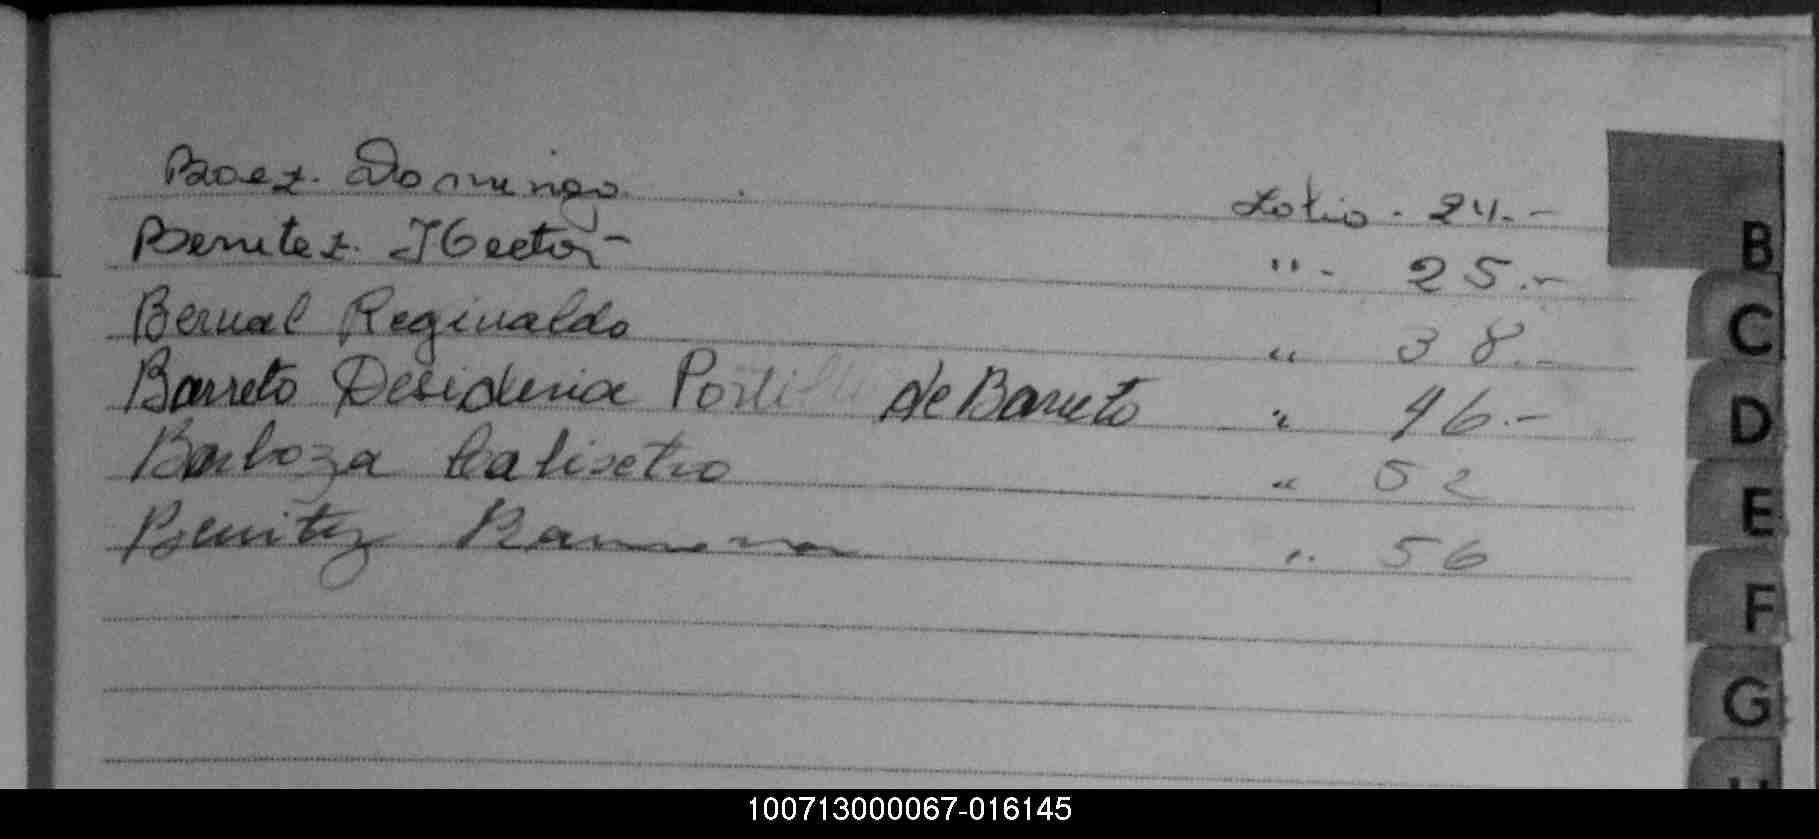 Baez. Domingo. Folio - 24.-
Benitez. Hector - " - 25.-
Bernal Reginaldo " 38.-
Barreto Desideria Portillo de Barreto " 46.-
Barboza Calisetro " 52
Benitez Ramona " 56
B
C
D
E
F
G
H
100713000067-016145